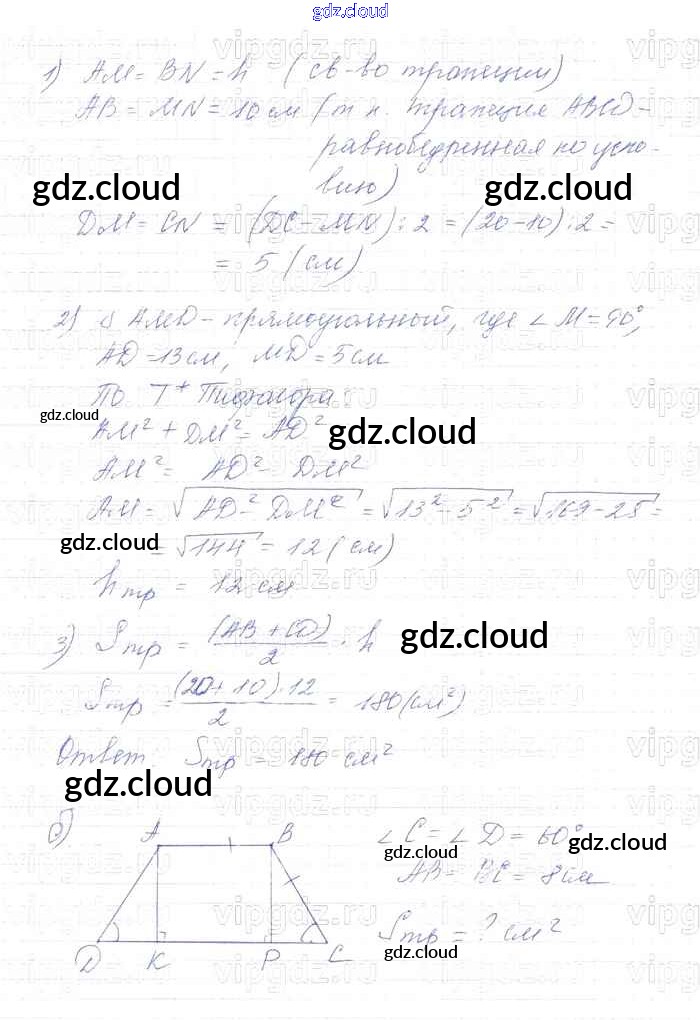 gdz.cloud
1) AM = BN = h (св-во трапеции)
AB = MN = 10 см (т.к. трапеция ABCD -
равнобедренная по усло-
вию)
gdz.cloud gdz.cloud
DM = CN = (DC - MN) : 2 = (20-10) : 2 =
= 5 (см)
2) Δ AMD - прямоугольный, где ∠ M = 90°,
AD = 13 см, MD = 5 см
По Т+ Пифагора
gdz.cloud
AM² + DM² = AD²
gdz.cloud
AM² = AD² - DM²
AM = √AD² - DM² = √13² - 5² = √169 - 25 =
gdz.cloud
= √144 = 12 (см)
hтр = 12 см
3) Sтр = (AB + CD)/2 · h
gdz.cloud
Sтр = (20 + 10) · 12/2 = 180 (см²)
Ответ: Sтр = 180 см²
gdz.cloud
б) A B ∠ C = ∠ D = 60°
gdz.cloud gdz.cloud
AB = BC = 8 см
Sтр = ? см²
D K P C
gdz.cloud